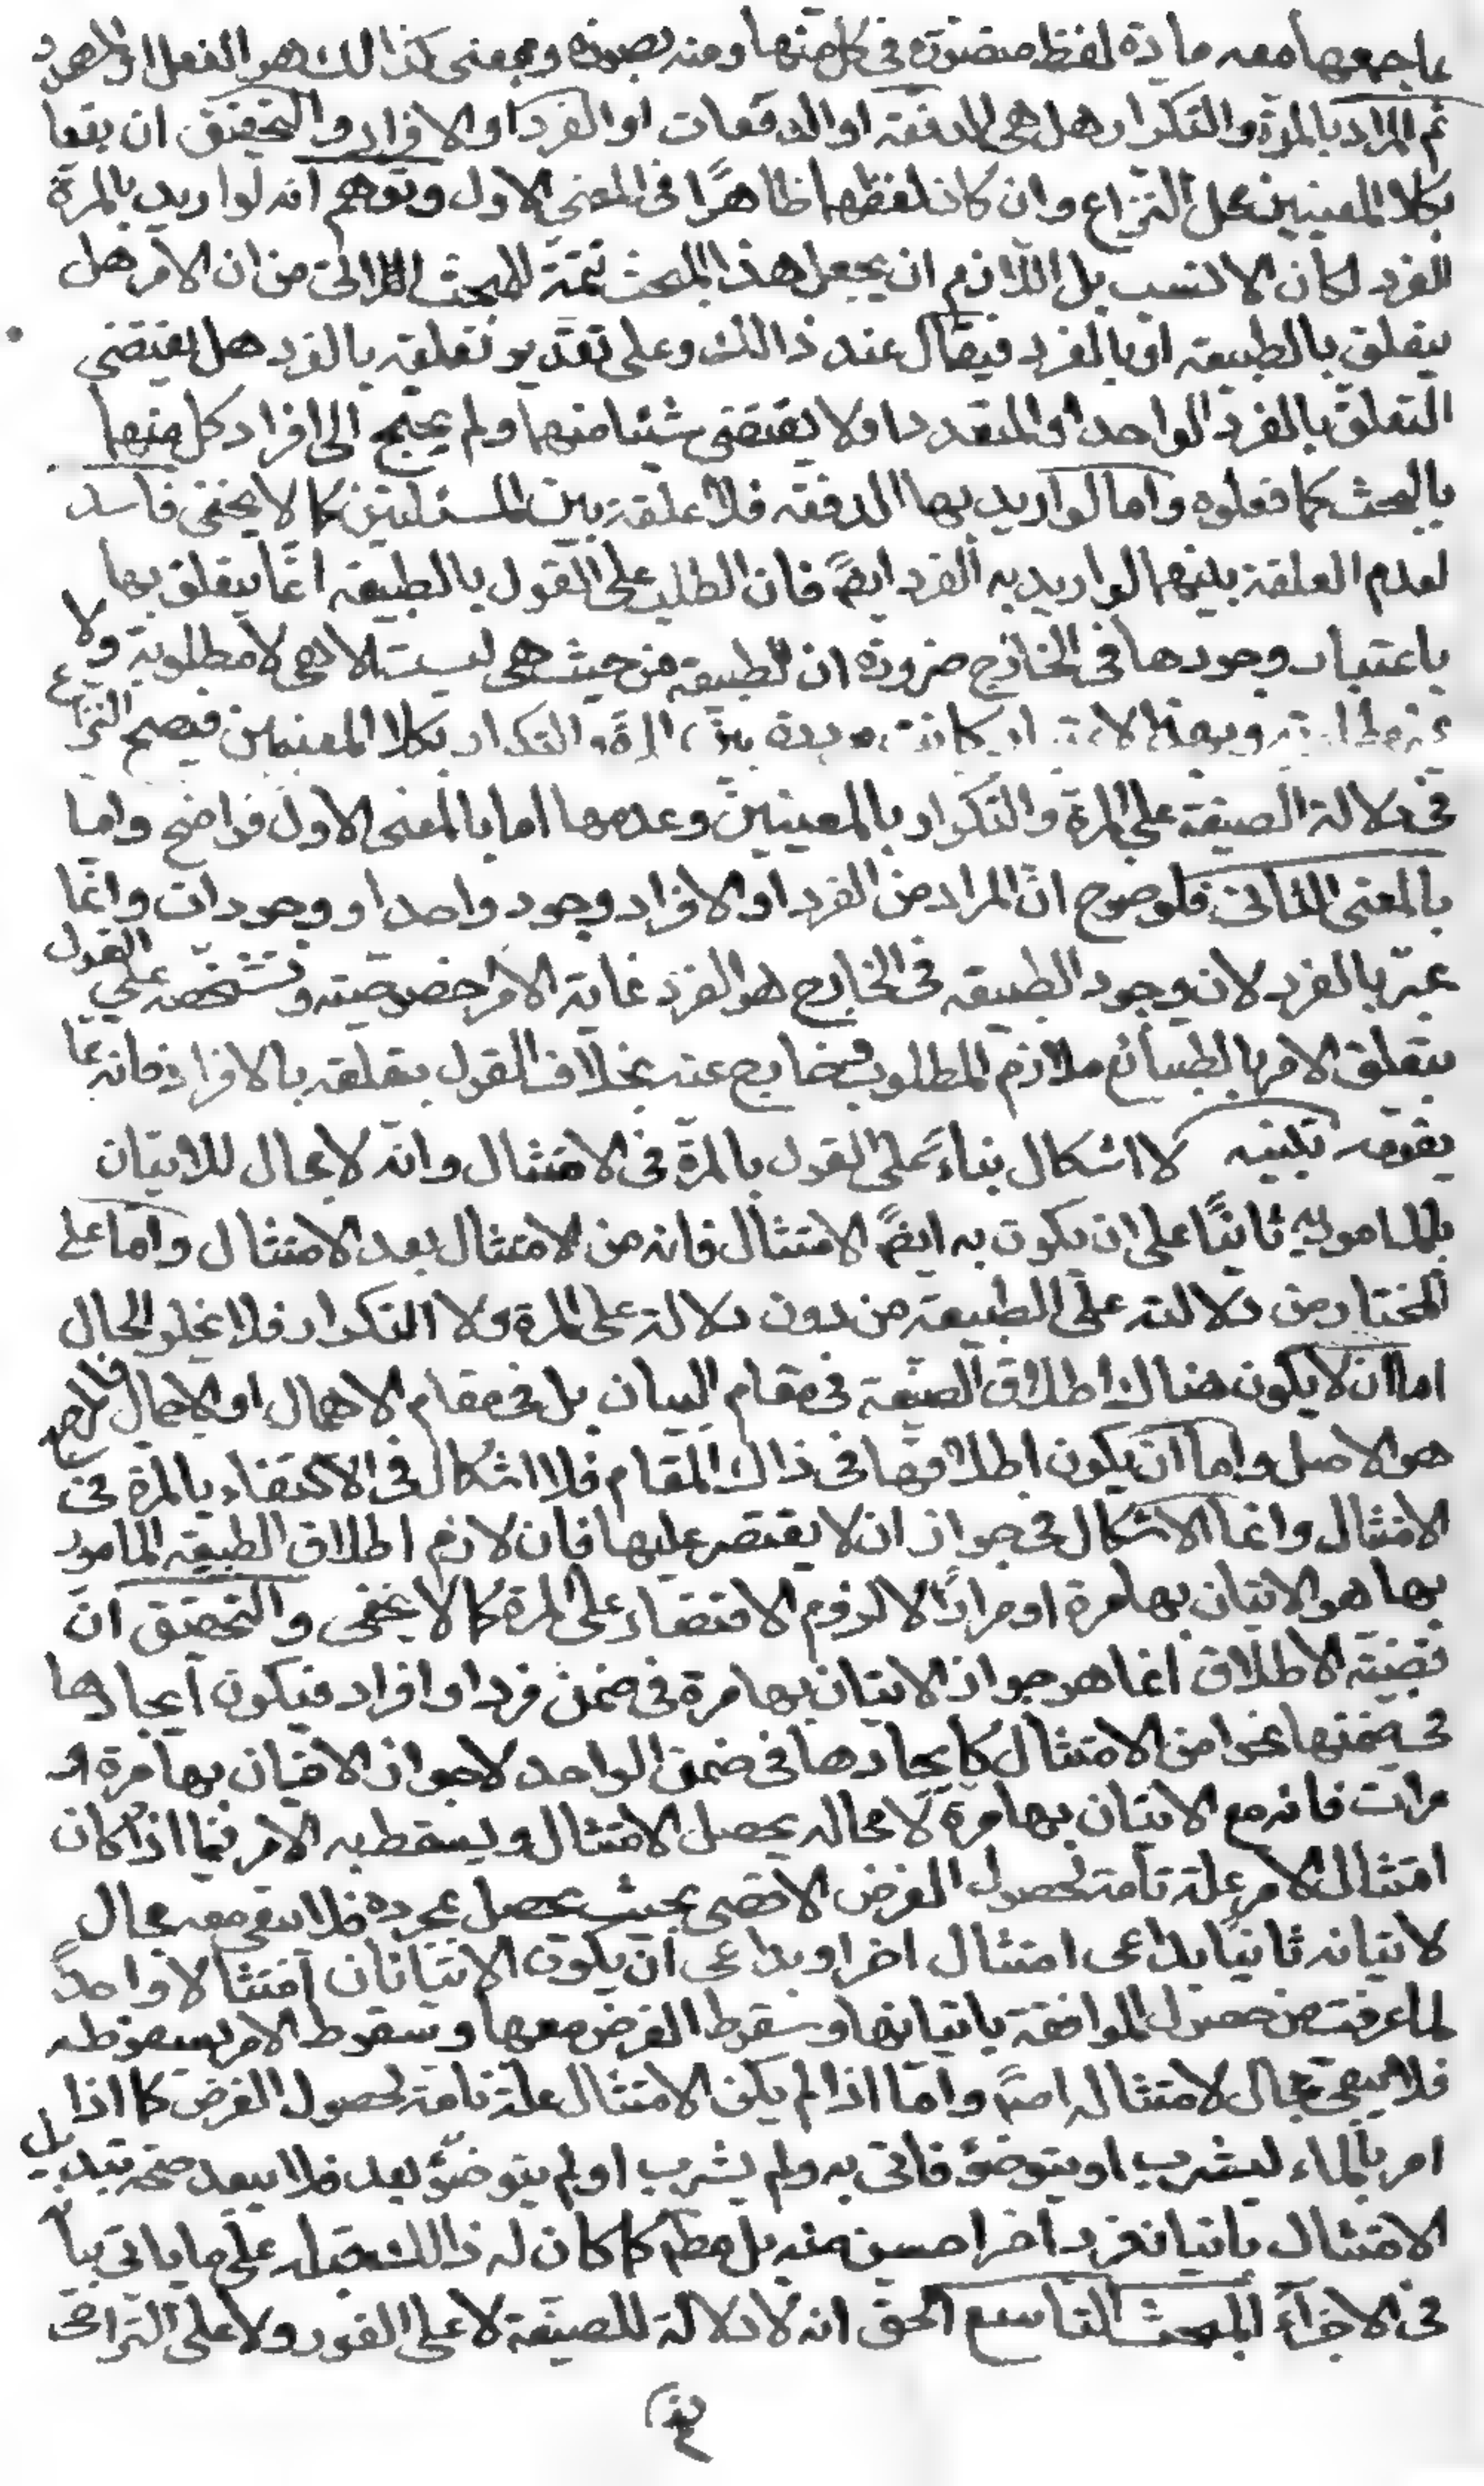 ما جمعها معه مادة لفظ متصورة في كل منها ومنه بصورة ومعنى كذالك هو الفعل او المصدر
ثم المراد بالمرة والتكرار هل هي الدفعة او الدفعات او الفرد او الافراد والتحقيق ان يقعا
بكلا المعنيين محل النزاع وان كان لفظهما ظاهرًا في المعنى الاول وتوهم انه لو اريد بالمرة
الفرد لكان الانسب بل اللازم ان يجعل هذا المبحث تتمة للمبحث الاتى من ان الامر هل
يتعلق بالطبيعة او بالفرد فيقال عند ذالك وعلى تقدير تعلقه بالفرد هل يقتضى
التعلق بالفرد الواحد او المتعدد او لا يقتضى شيئا منهما ولم يحتج الى افراد كل منهما
بالبحث كما فعلوه واما لو اريد بها الدفعة فلا علقة بين المسئلتين كما لا يخفى فاسد
لعدم العلقة بينهما لو اريد به الفرد ايضً فان الطلب على القول بالطبيعة انما يتعلق بها
باعتبار وجودها في الخارج ضرورة ان الطبيعة من حيث هى ليست الا هى لا مطلوبة ولا
وبهذا الاعتبار كانت مرددة بين المرة والتكرار بكلا المعنيين فيصح النزاع
في دلالة الصيغة على المرة والتكرار بالمعنيين وعدمها اما بالمعنى الاول فواضح واما
بالمعنى الثانى فلوضوح انّ المراد من الفرد او الافراد وجود واحد او وجودات وانما
عبّر بالفرد لان وجود الطبيعة في الخارج هو الفرد غاية الامر خصوصيته وتشخّصه على القول
بتعلق الامر بالطبائع ملازم المطلوب وخارج عنه بخلاف القول بتعلقه بالافراد فانه مما
يقومه تنبيه لا اشكال بناءً على القول بالمرة في الامتثال وانّه لا مجال للاتيان
بالمامور به ثانيًا على ان يكون به ايضً الامتثال فانه من الامتثال بعد الامتثال واما على
المختار من دلالته على الطبيعة من دون دلالة على المرة ولا التكرار فلا يخلو الحال
اما ان لا يكون هناك اطلاق الصيغة في مقام البيان بل في مقام الاهمال او الاجمال فالمرجع
هو الاصل واما ان يكون اطلاقها في ذاك المقام فلا اشكال في الاكتفاء بالمرة في
الامتثال وانما الاشكال في جواز ان لا يقتصر عليها فان لازم اطلاق الطبيعة المامور
بها هو الاتيان بها مرة او مرارًا لا لزوم الاقتصار على المرة كما لا يخفى والتحقيق انّ
قضيّة الاطلاق انما هو جواز الاتيان بها مرة في ضمن فرد او افراد فيكون ايجادها
في ضمنها نحوا من الامتثال كايجادها في ضمن الواحد لا جواز الاتيان بها مرة او
مرات فانه مع الاتيان بها مرة لا محالة يحصل الامتثال ويسقط به الامر فيما اذا كان
امتثال الامر علة تامة لحصول الغرض الاقصى بحيث يحصل بمجرده فلا يبقى معه مجال
لاتيانه ثانيًا بداعى امتثال اخر او بداعى ان يكون الاتيانان امتثالا واحدًا
لما عرفت من حصول الموافقة باتيانها وسقوط الغرض معها وسقوط الامر بسقوطه
فلا يبقى مجال لامتثاله اصلا واما اذا لم يكن الامتثال علة تامة لحصول الغرض كما اذا
امر بالماء ليشرب او يتوضؤ فاتى به ولم يشرب او لم يتوضؤ بعد فلا يبعد صحة تبديل
الامتثال باتيان فرد اخر احسن منه بل مطم كما كان له ذالك قبله على ما ياتى بيانه
في الاجزاء المبحث التاسع الحق انه لا دلالة للصيغة لا على الفور ولا على التراخى